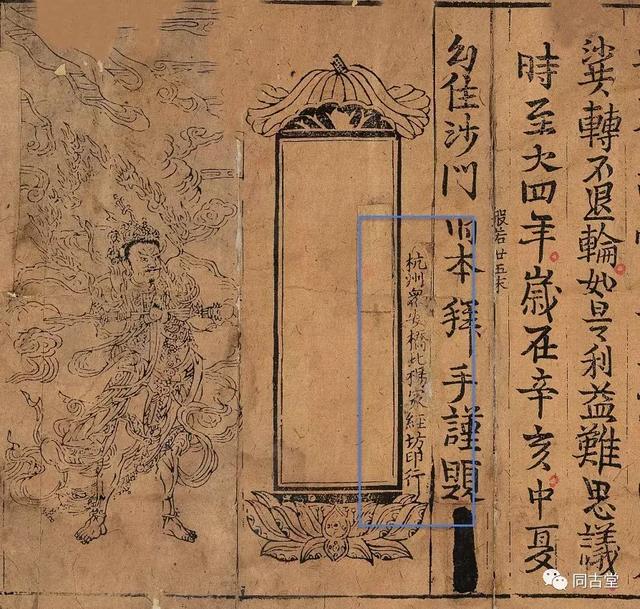 轉不退輪如是利益難思議
時至大四年歲在辛亥中夏
般若廿五末
幻住沙門明本拜手謹題
杭州眾安橋北楊家經坊印行
同古堂